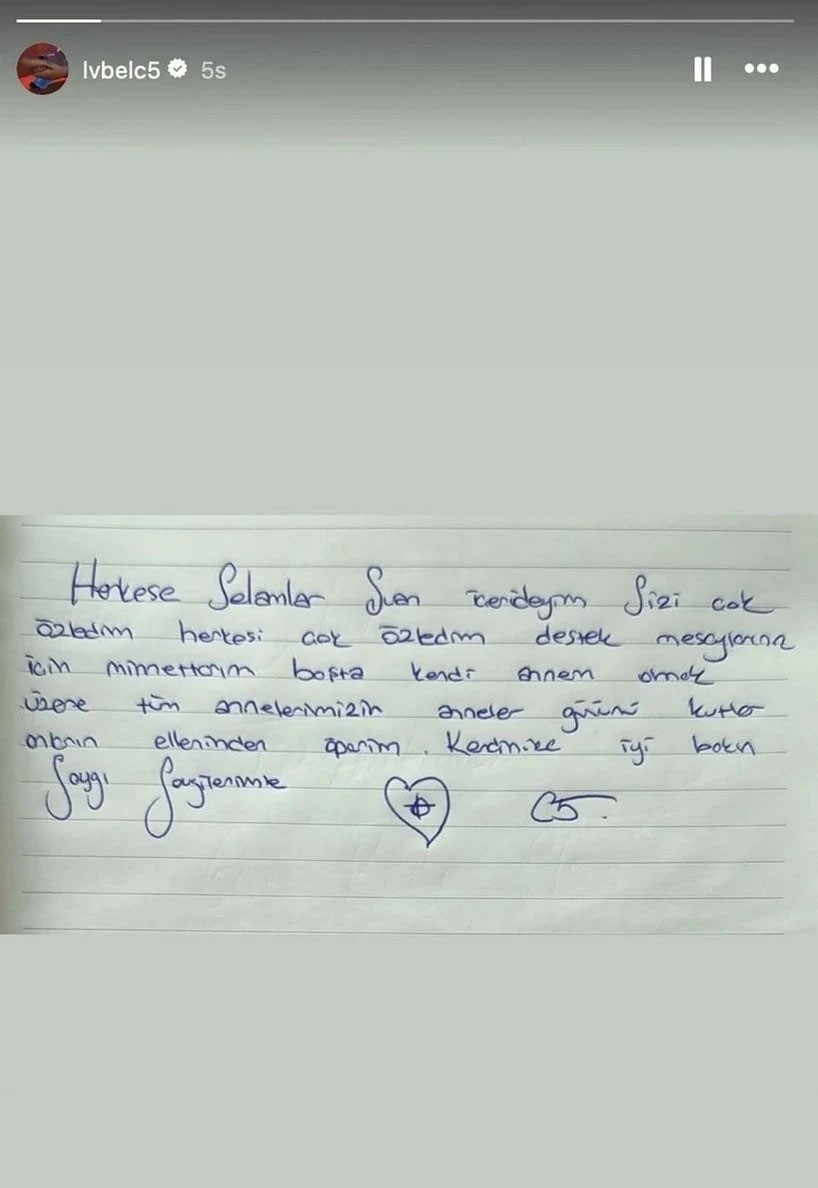 lvbelc5 5s
Herkese Selamlar Şuan içerideyim Sizi çok
özledim herkesi çok özledim destek mesajlarınız
için minnettarım başta kendi annem olmak
üzere tüm annelerimizin anneler gününü kutlar
onların ellerinden öperim. Kendinize iyi bakın
Saygı Sevgilerimle C5.